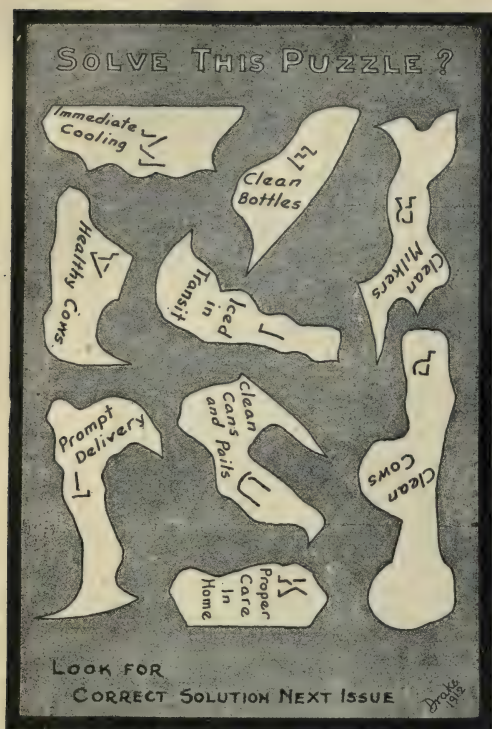 SOLVE THIS PUZZLE?
Immediate
Cooling
Clean
Bottles
Clean
Milkers
Healthy Cows.
Iced in
Transit
Prompt
Delivery
Clean
Cans
and Pails
Clean
Cows
Proper
Care
In
Home
LOOK FOR
CORRECT SOLUTION NEXT ISSUE
Drake
1912